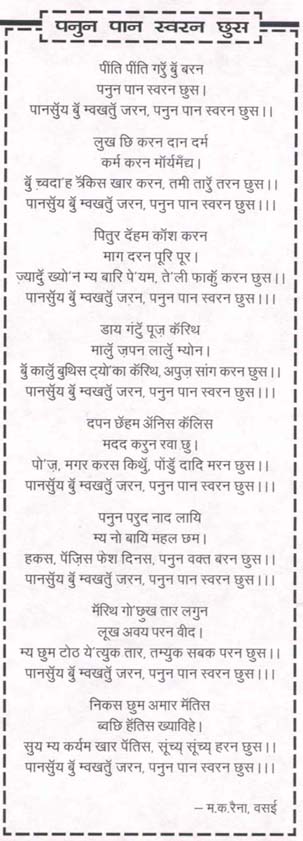 पनुन पान स्वरन छुस
पींति पींति गरॖ बॖ बरन
पनुन पान स्वरन छुस।
पानसॖय बॖ म्वखतॖ जरन, पनुन पान स्वरन छुस।।
लुख छि करन दान दर्म
कर्म करन मॉर्यमॅद्य।
बॖ च्वदा'ह त्रॅकिस खार करन, तमी तारॖ तरन छुस।।
पानसॖय बॖ म्वखतॖ जरन, पनुन पान स्वरन छुस।।।
पितुर दॅहम कॉश करन
माग दरन पूरि पूर।
ज़्यादॖ ख्यो'न म्य बारि पे'यम, ते'ली फाकॖ करन छुस।।
पानसॖय बॖ म्वखतॖ जरन, पनुन पान स्वरन छुस।।।
डाय गंटॖ पूज़ कॅरिथ
मालॖ ज़पन लालॖ म्योन।
बॖ कालॖ बुथिस ट्यो'का कॅरिथ, अपुज़ सांग करन छुस।।
पानसॖय बॖ म्वखतॖ जरन, पनुन पान स्वरन छुस।।।
दपन छॅहम ॲनिस कॅलिस
मदद करुन रवा छु।
पो'ज़, मगर करस किथॖ, पोंडॖ दादि मरन छुस।।
पानसॖय बॖ म्वखतॖ जरन, पनुन पान स्वरन छुस।।।
पनुन परुद नाद लायि
म्य नो बायि महल छम।
हकस, पॅंज़िस फेश दिनस, पनुन वक्त बरन छुस।।
पानसॖय बॖ म्वखतॖ जरन, पनुन पान स्वरन छुस।।।
मॅरिथ गो'छुख तार लगुन
लूख अवय परन वीद।
म्य छुम टोठ ये'त्युक तार, तम्युक सबक परन छुस।।
पानसॖय बॖ म्वखतॖ जरन, पनुन पान स्वरन छुस।।।
निकस छुम अमार मॅतिस
ब्वछि हॅतिस ख्याविहे।
सुय म्य कर्यम खार पॅतिस, सूंच्य् सूंच्य् हरन छुस।।
पानसॖय बॖ म्वखतॖ जरन, पनुन पान स्वरन छुस।।।
– म.क.रैना, वसई